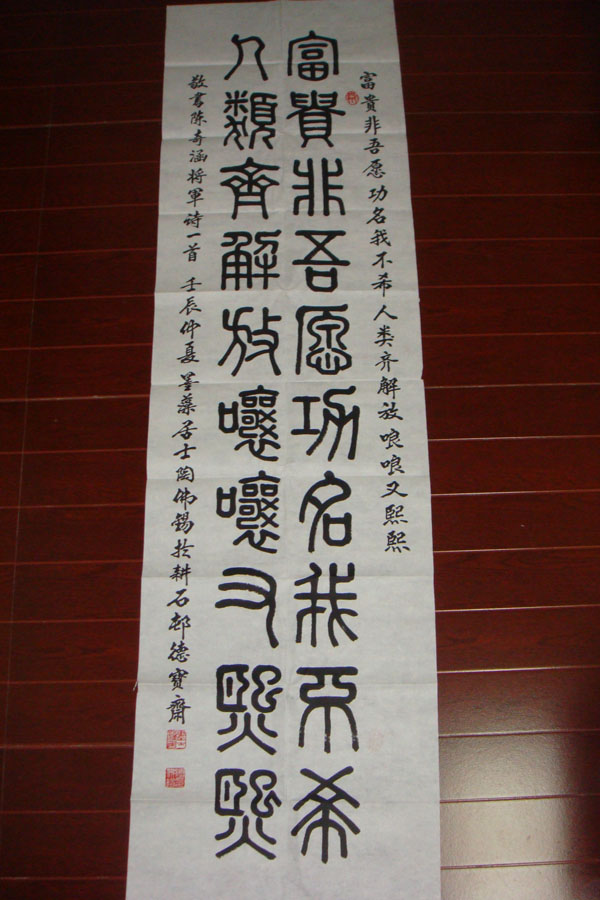 富貴非吾愿功名我不希人类齐解放哴哴又熙熙
富貴非吾愿功名我不希
人類齊解放嚷嚷又熙熙
敬書陈奇涵将軍诗一首 壬辰仲夏 居士陶佛錫於耕石邨德寶齋